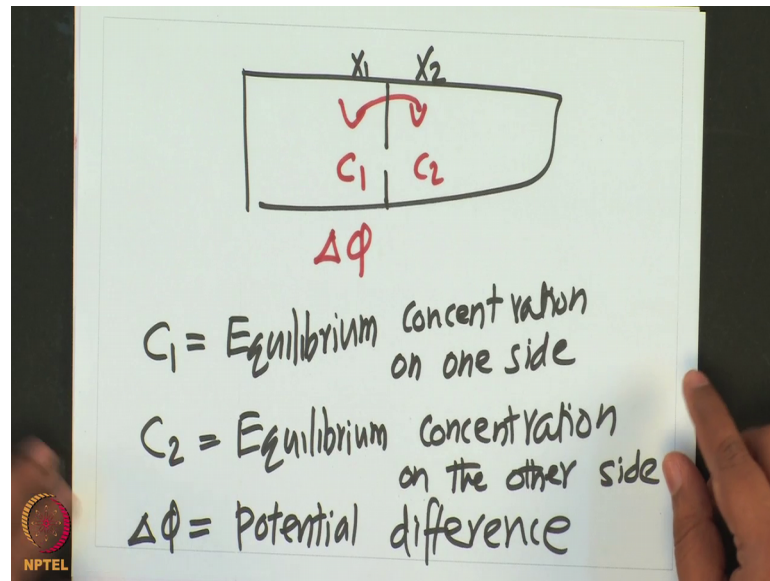 X1 X2
C1 C2
Δφ
C1 = Equilibrium concentration
on one side
C2 = Equilibrium concentration
on the other side
Δφ = Potential difference
NPTEL